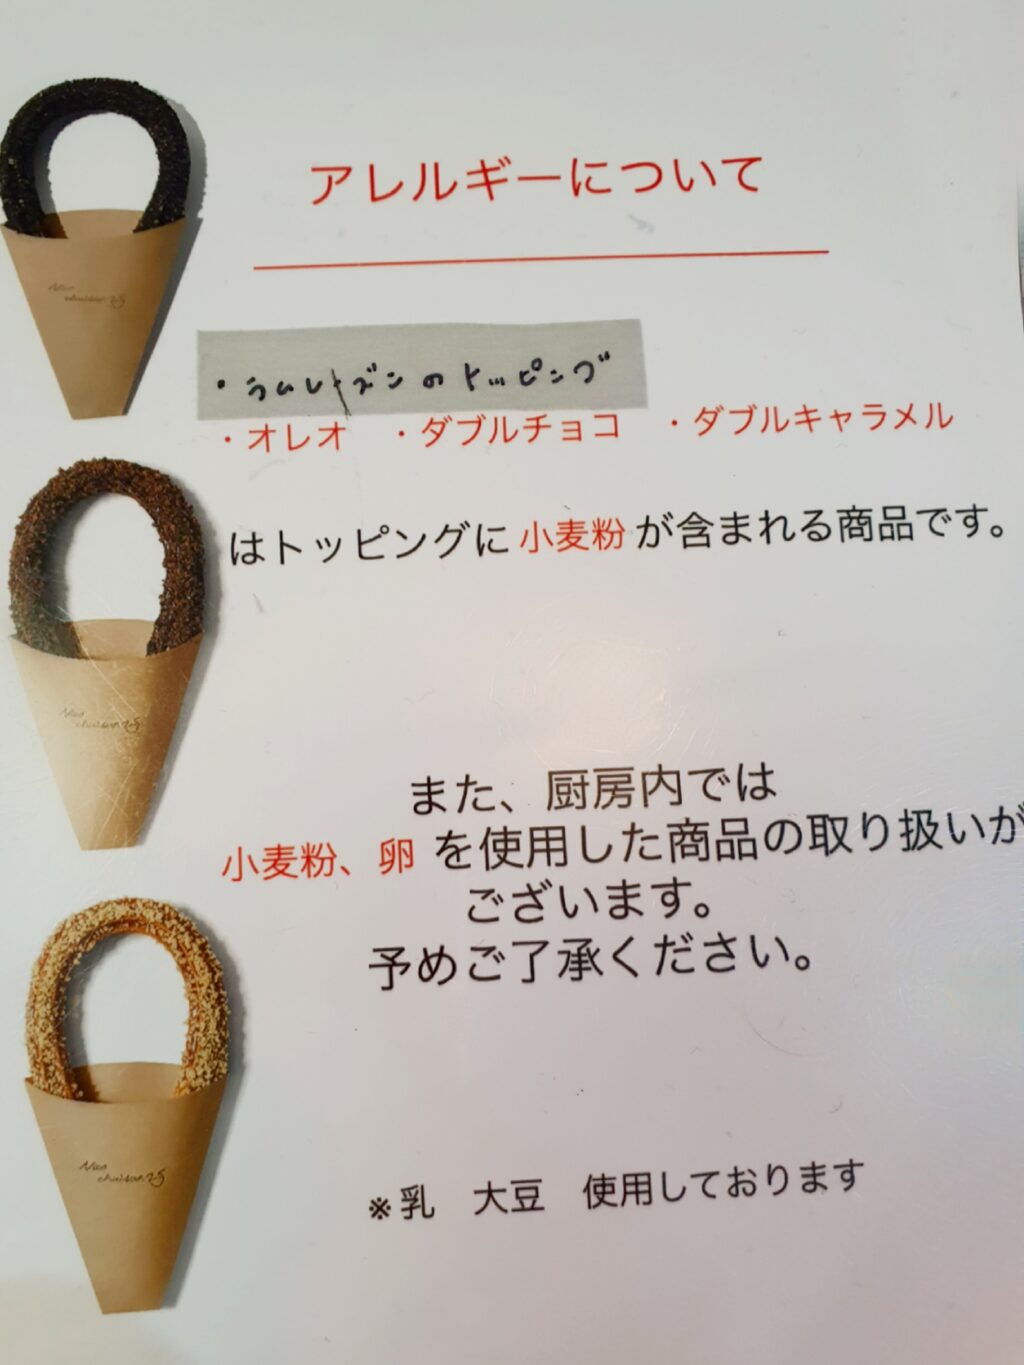 アレルギーについて
・ラムレーズンのトッピング
・オレオ ・ダブルチョコ ・ダブルキャラメル
はトッピングに小麦粉が含まれる商品です。
また、厨房内では
小麦粉、卵 を使用した商品の取り扱いが
ございます。
予めご了承ください。
※乳 大豆 使用しております